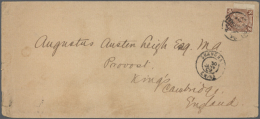 Augustus Austen Leigh Esq. M.A.
Provost
King's
Cambridge
England